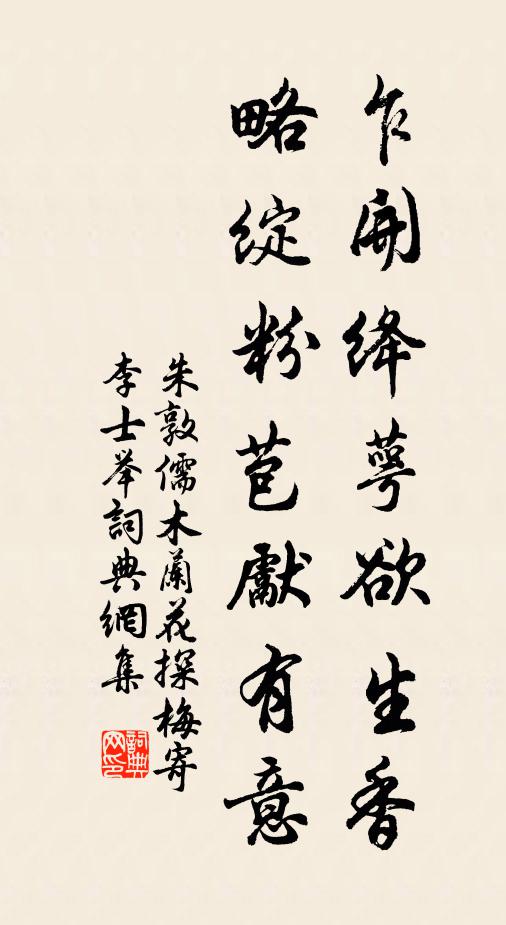 乍開絳萼欲生香
略綻粉苞獻有意
朱敦儒木蘭花探梅寄
李士举詞典網集
詞典
网印